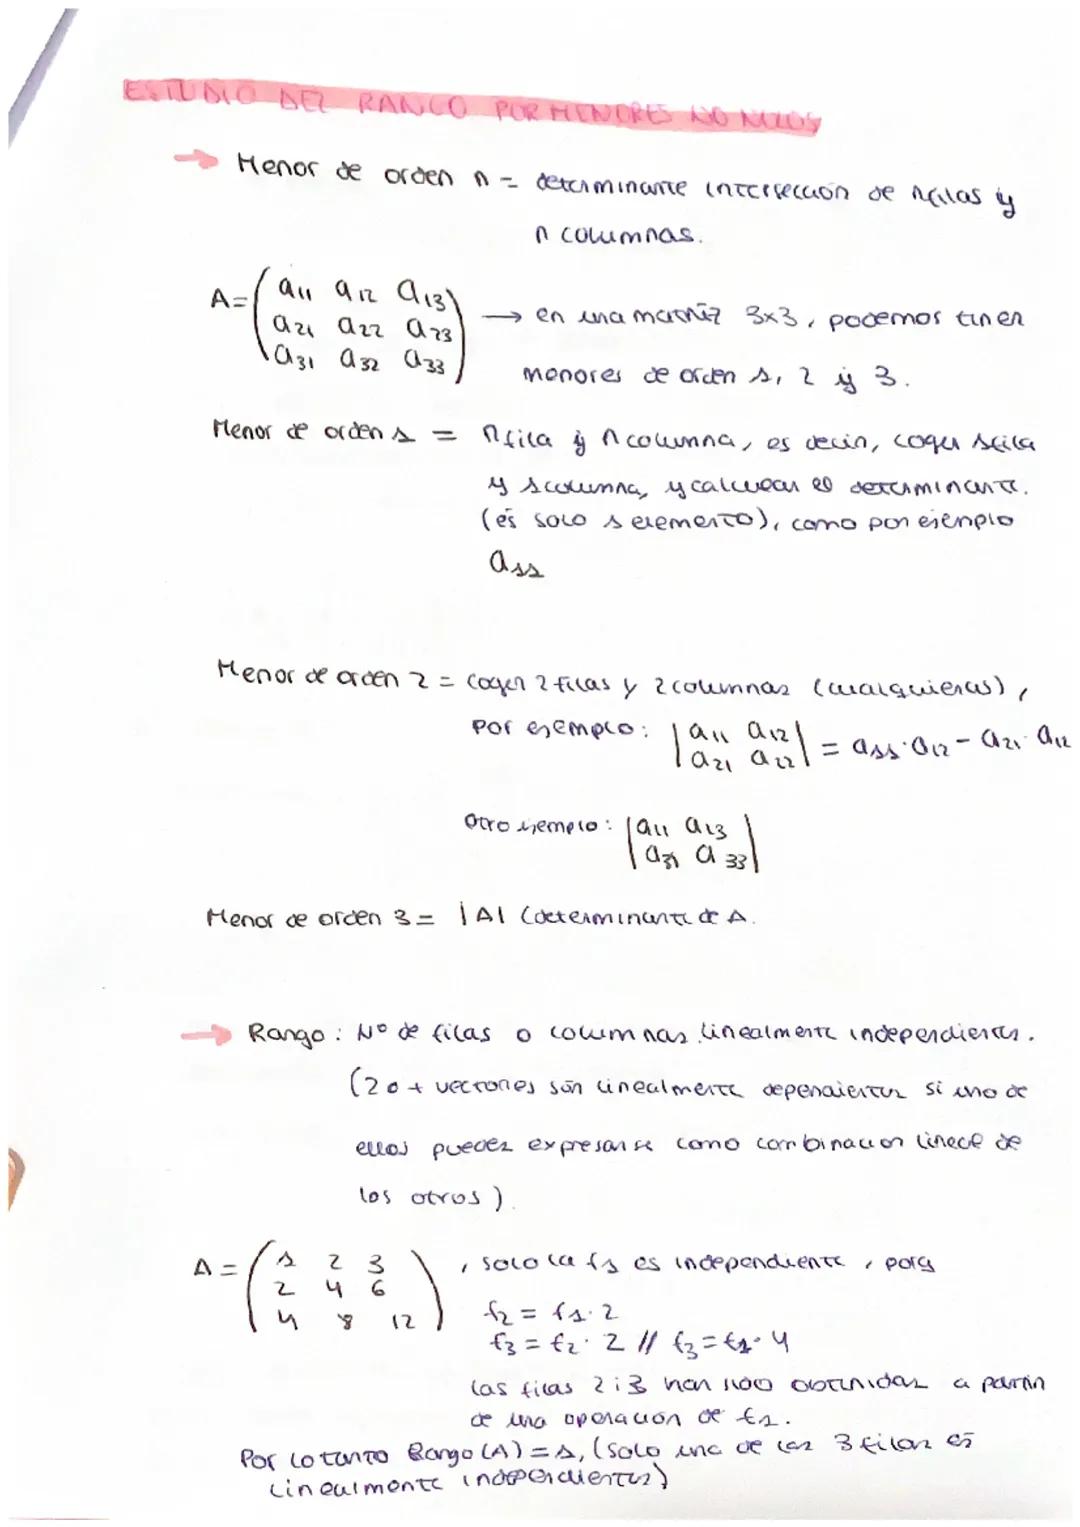 ESTUDIO DEL RANGO POR MENORES NO NULOS
→ Menor de orden n = determinante intersección de n filas y
n columnas.
A = ( a11 a12 a13
a21 a22 a23
a31 a32 a33 )
→ en una matriz 3x3, podemos tener
menores de orden 1, 2 y 3.
Menor de orden 1 = n fila y n columna, es decir, coger 1 fila
y 1 columna, y calcular el determinante.
(es solo 1 elemento), como por ejemplo
a11
Menor de orden 2 = coger 2 filas y 2 columnas (cualquieras),
por ejemplo: | a11 a12 | = a11 · a12 - a21 · a12
| a21 a22 |
Otro ejemplo: | a11 a13 |
| a31 a33 |
Menor de orden 3 = |A| (determinante de A.
→ Rango: Nº de filas o columnas linealmente independientes.
(2 o + vectores son linealmente dependientes si uno de
ellos puedes expresarse como combinacion lineal de
los otros).
A = ( 1 2 3
2 4 6
4 8 12 )
, solo la f1 es independiente, porq
f2 = f1 · 2
f3 = f2 · 2 // f3 = f1 · 4
las filas 2 i 3 han sido obtenidas a partir
de una operación de f1.
Por lo tanto Rango (A) = 1, (solo una de las 3 filas es
linealmente independientes)